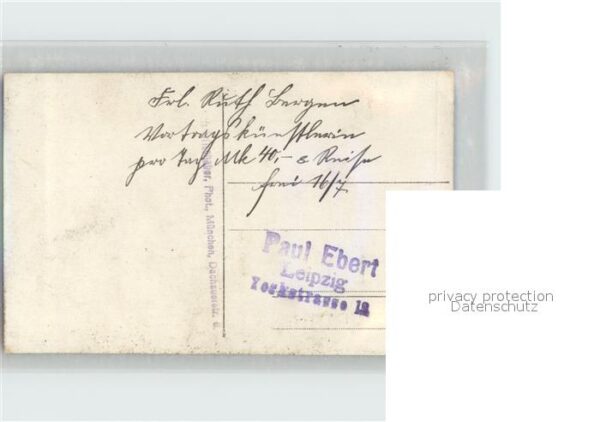 Frl. Ruth Bergen
Vortragskünstlerin
pro Tag Mk 40,- & Reise
frei 16/7.
Phot., München, Dachauerstr. 6.
Paul Ebert
Leipzig
Yorkstrasse 12
privacy protection
Datenschutz